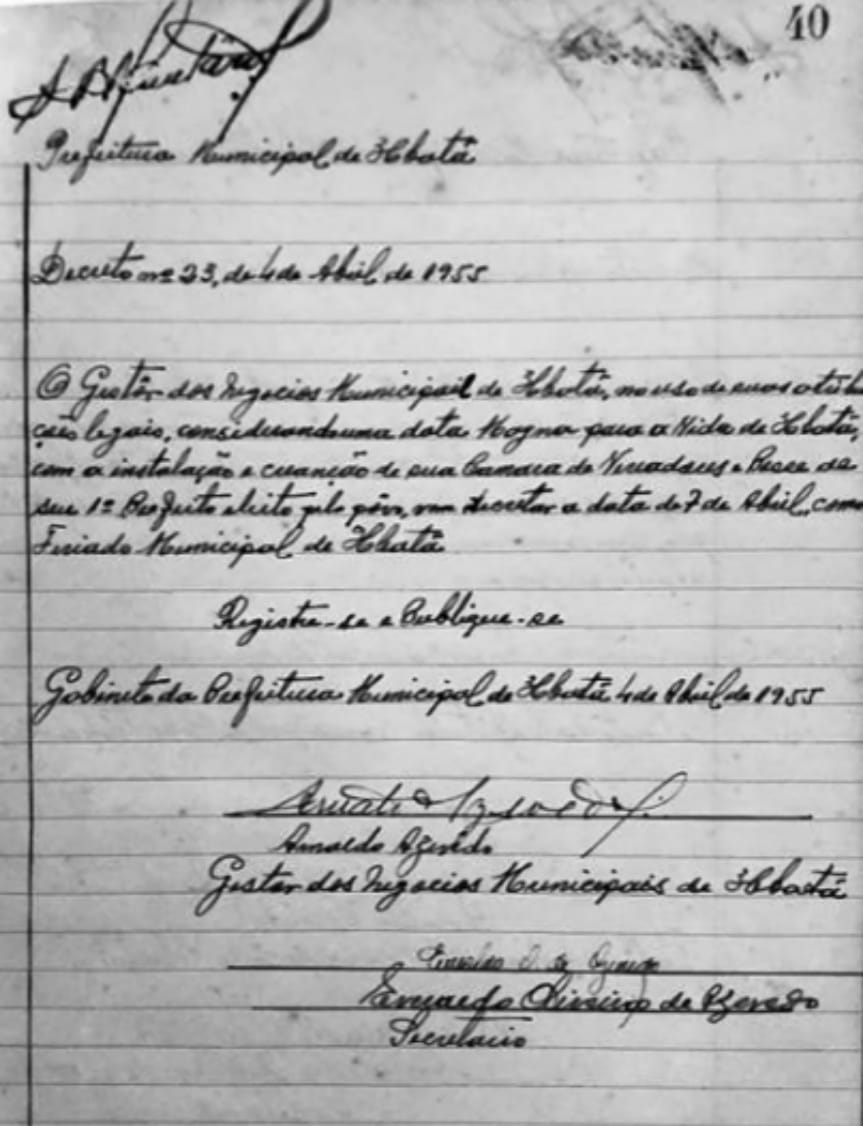 40
Prefeitura Municipal de Ibatã
Decreto nº 23, de 4 de Abril de 1955
O Gestôr dos Negocios Municipais de Ibatã, no uso de suas atribu
ções legais, considerando uma data Magna para a Vida de Ibatã,
com a instalação e creanção de sua Camara de Vereadores e Posse de
seu 1º Prefeito eleito pelo pôvo, vem decretar a data de 7 de Abril, como
Feriado Municipal de Ibatã
Registre-se e Publique-se
Gabinete da Prefeitura Municipal de Ibatã 4 de Abril de 1955
Arnaldo Azevêdo
Gestor dos Negocios Municipais de Ibatã
de Azevedo
Secretario